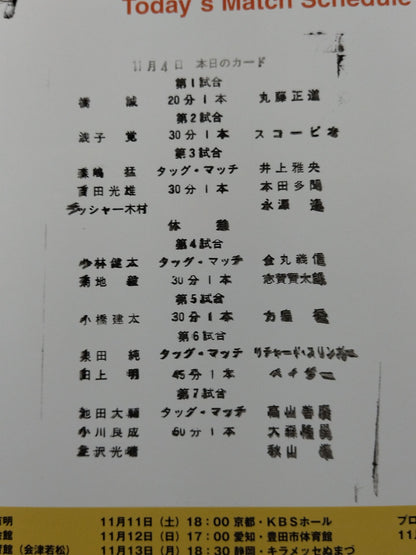 Today's Match Schedule
11月4日 本日のカード
第1試合
橋 誠 20分1本 丸藤正道
第2試合
浅子 覚 30分1本 スコーピオ
第3試合
森嶋 猛 タッグ・マッチ 井上雅央
百田光雄 30分1本 本田多聞
ラッシャー木村 永源 遙
休 憩
第4試合
小林健太 タッグ・マッチ 金丸義信
菊地 毅 30分1本 志賀賢太郎
第5試合
小橋建太 30分1本
第6試合
泉田 純 タッグ・マッチ リチャード・スリンガー
田上 明 45分1本 ベイダー
第7試合
池田大輔 タッグ・マッチ 高山善廣
小川良成 60分1本 大森隆男
三沢光晴 秋山 準
有明 11月11日(土)18:00 京都・KBSホール プロ
館 11月12日(日)17:00 愛知・豊田市体育館 11
館(会津若松) 11月13日(月)18:30 静岡・キラメッセぬまづ